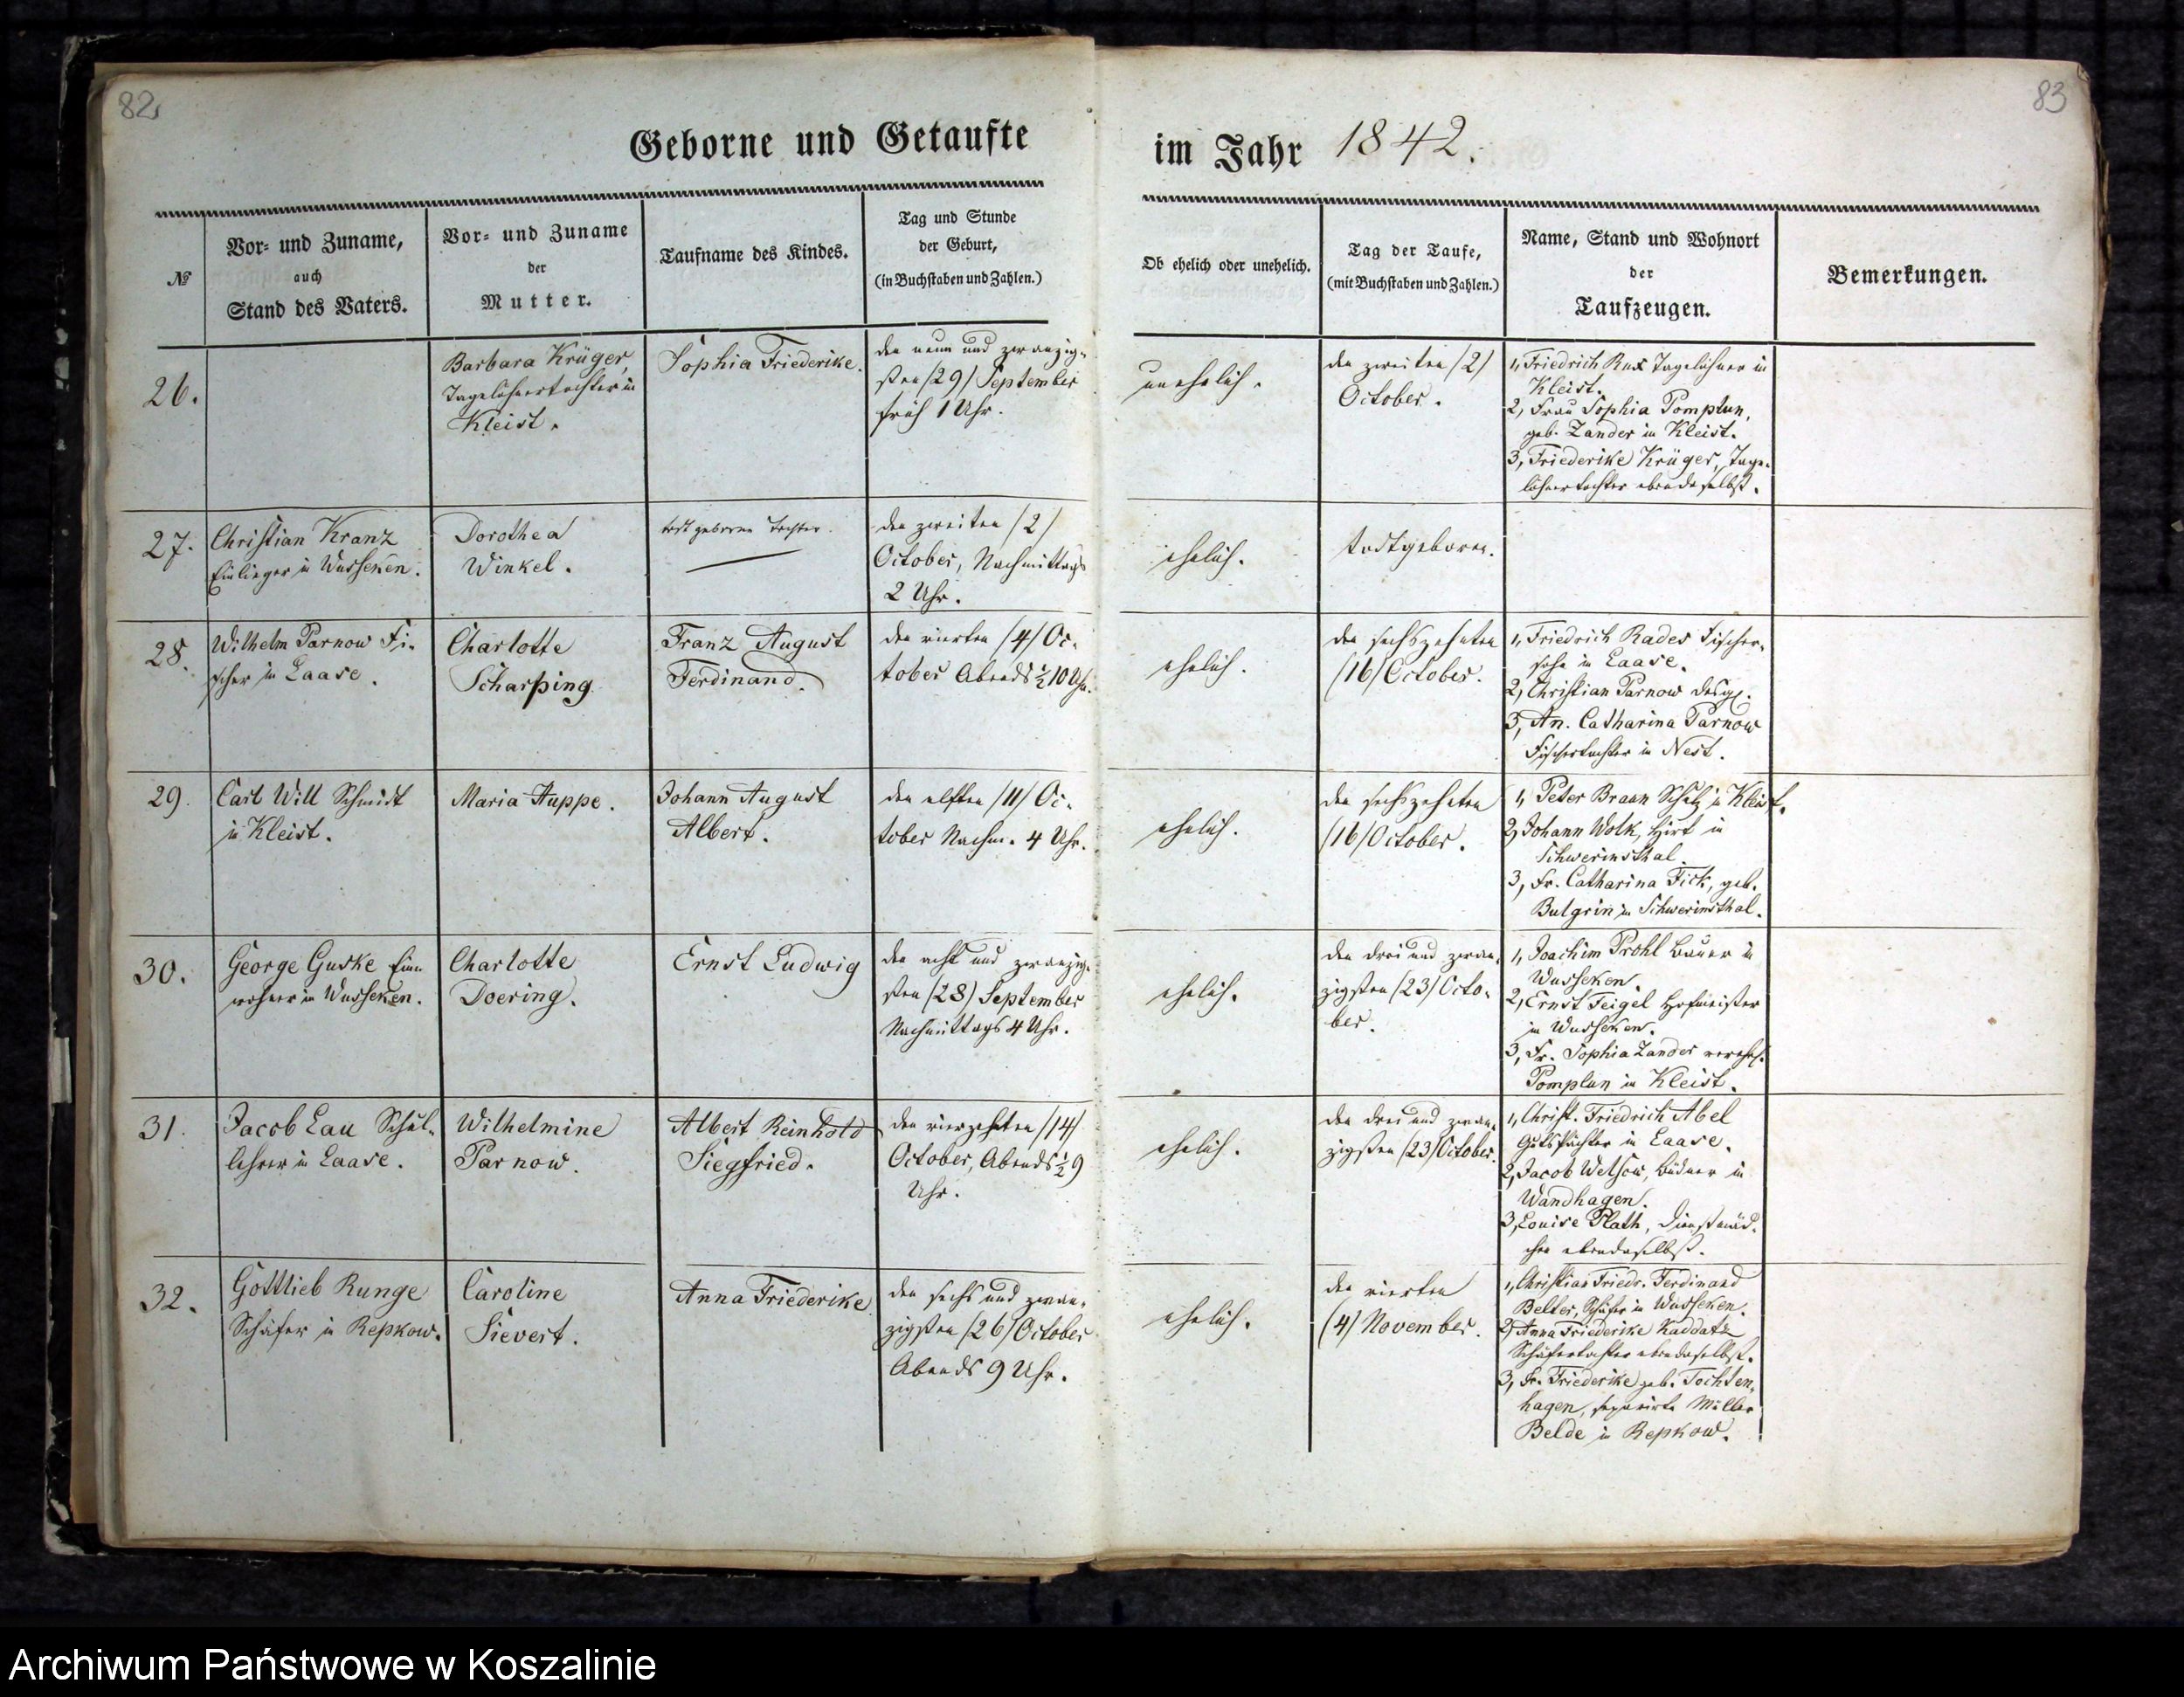 82.
83
Geborne und Getaufte
im Jahr 1842.
№
Vor- und Zuname,
auch
Stand des Vaters.
Vor- und Zuname
der
Mutter.
Taufname des Kindes.
Tag und Stunde
der Geburt,
(in Buchstaben und Zahlen.)
Ob ehelich oder unehelich.
Tag der Taufe,
(mit Buchstaben und Zahlen.)
Name, Stand und Wohnort
der
Taufzeugen.
Bemerkungen.
26.
Barbara Krüger,
Tagelöhnertochter in
Kleist.
Sophia Friederike.
den neun und zwanzig-
sten /29/ September
früh 1 Uhr.
unehelich.
den zweiten /2/
October.
1, Friedrich Rux Tagelöhner in
Kleist.
2, Frau Sophia Pomplun,
geb. Zander in Kleist.
3, Friederike Krüger, Tage-
löhnertochter ebendaselbst.
27.
Christian Kranz
Einlieger in Wusseken.
Dorothea
Winkel.
todt geborne Tochter.
den zweiten /2/
October, Nachmittags
2 Uhr.
ehelich.
todtgeboren.
28.
Wilhelm Parnow Fi-
scher in Laase.
Charlotte
Scharping.
Franz August
Ferdinand.
den vierten /4/ Oc-
tober Abends ½ 10 Uhr.
ehelich.
den sechszehnten
/16/ October.
1, Friedrich Rades Fischer-
sohn in Laase.
2, Christian Parnow desgl.
3, An. Catharina Parnow
Fischertochter in Nest.
29.
Carl Will Schmidt
in Kleist.
Maria Huppe.
Johann August
Albert.
den elften /11/ Oc-
tober Nachm. 4 Uhr.
ehelich.
den sechszehnten
/16/ October.
1, Peter Braun Schulz in Kleist.
2, Johann Wolk, Hirt in
Schwerinsthal.
3, Fr. Catharina Fick, geb.
Bulgrin in Schwerinsthal.
30.
George Guske Ein-
wohner in Wusseken.
Charlotte
Doering.
Ernst Ludwig
den acht und zwanzig-
sten /28/ September
Nachmittags 4 Uhr.
ehelich.
den drei und zwan-
zigsten /23/ Octo-
ber.
1, Joachim Prohl Bauer in
Wusseken.
2, Ernst Feigel Hofmeister
in Wusseken.
3, Fr. Sophia Zander verehel.
Pomplun in Kleist.
31.
Jacob Lau Schul-
lehrer in Laase.
Wilhelmine
Parnow.
Albert Reinhold
Siegfried.
den vierzehnten /14/
October, Abends ½ 9
Uhr.
ehelich.
den drei und zwan-
zigsten /23/ October.
1, Christ. Friedrich Abel
Gutspächter in Laase.
2, Jacob Welsow, Büdner in
Wandhagen.
3, Louise Plath, Dienstmäd-
chen ebendaselbst.
32.
Gottlieb Runge
Schäfer in Repkow.
Caroline
Sievert.
Anna Friederike
den sechs und zwan-
zigsten /26/ October
Abends 9 Uhr.
ehelich.
den vierten
(4) November.
1, Christian Friedr. Ferdinand
Belter, Schäfer in Wusseken.
2, Anna Friederike Kaddatz
Schäfertochter ebendaselbst.
3, Fr. Friederike geb. Tochten-
hagen, separirte Müller
Belde in Repkow.
Archiwum Państwowe w Koszalinie